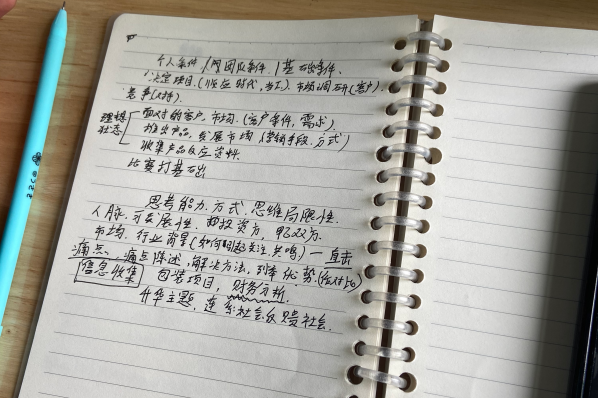 个人条件/团队条件/基础条件.
决定项目.(顺应时代,当下).市场调研(客户).
竞争对手).
理想状态
面对的客户.市场.(客户条件,需求).
推出产品.发展市场(营销手段.方式)
收集产品反应资料.
比赛打基础
思考能力.方式.思维局限性.
人脉.可发展性.把投资方.甲乙双方.
市场.行业背景(如何引起关注.共鸣)—直击
痛点.痛点陈述,解决方法,优势.(对比)
信息收集
包装项目,财务分析.
升华主题,连系社会反馈社会.
zzco